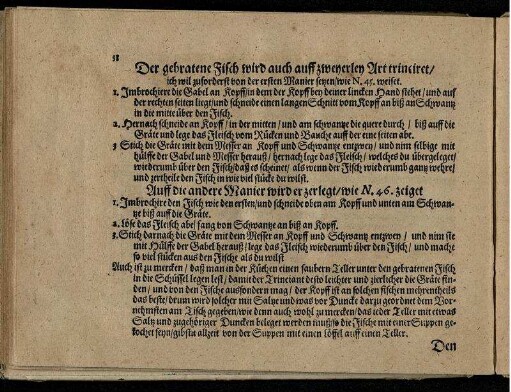 38
Der gebratene Fisch wird auch auff zweyerley Art trinciret/
ich wil zuforderst von der ersten Manier setzen/wie N. 45. weiset.
1. Imbrochiere die Gabel an Kopff/in dem der Kopff bey deiner lincken Hand stehet/und auf
der rechten seiten liegt/und schneide einen langen Schnitt vom Kopff an biß an Schwantz
in die mitte über den Fisch.
2. Hernach schneide an Kopff/in der mitten/und am schwantze die quere durch/ biß auff die
Gräte und lege das Fleisch vom Rücken und Bauche auff der eine seiten abe.
3 Stich die Gräte mit dem Messer an Kopff und Schwantze entzwey/ und nim selbige mit
hülffe der Gabel und Messer herauß/ hernach lege das Fleisch/ welches du übergeleget/
wiederumb über den Fisch/daß es scheinet/ als wenn der Fisch wiederumb gantz wehre/
und zertheile den Fisch in wie viel stücke du wilst.
Auff die andere Manier wird er zerlegt/wie N. 46. zeiget
1. Imbrochire den Fisch wie den ersten/und schneide oben am Kopff und unten am Schwan-
tze biß auff die Gräte.
2. löse das Fleisch abe/lang von Schwantze an biß an Kopff.
3. Stich darnach die Gräte mit dem Messer an Kopff und Schwantz entzwey / und nim sie
mit Hülffe der Gabel herauß/lege das Fleisch wiederumb über den Fisch/ und mache
so viel stücken aus den Fische als du wilst
Auch ist zu mercken/ daß man in der Küchen einen saubern Teller unter den gebratenen Fisch
in die Schüssel legen lest/damit der Trinciant desto leichter und zierlicher die Gräte fin-
den/ und von den Fische außfondern mag/ der Kopff ist an solchen fischen mehrentheils
das beste/drum wird solcher mit Saltze und was vor Duncke darzu geordnet dem Vor-
nehmsten am Tisch gegeben/wie denn auch wohl zu mercken/das jeder Teller mit etwas
Saltz und zugehöriger Duncken beleget werden muß/so die Fische mit einer Suppen ge-
kochet seyn/gibstu allzeit von der Suppen mit einen Löffel auff einen Teller.
Den